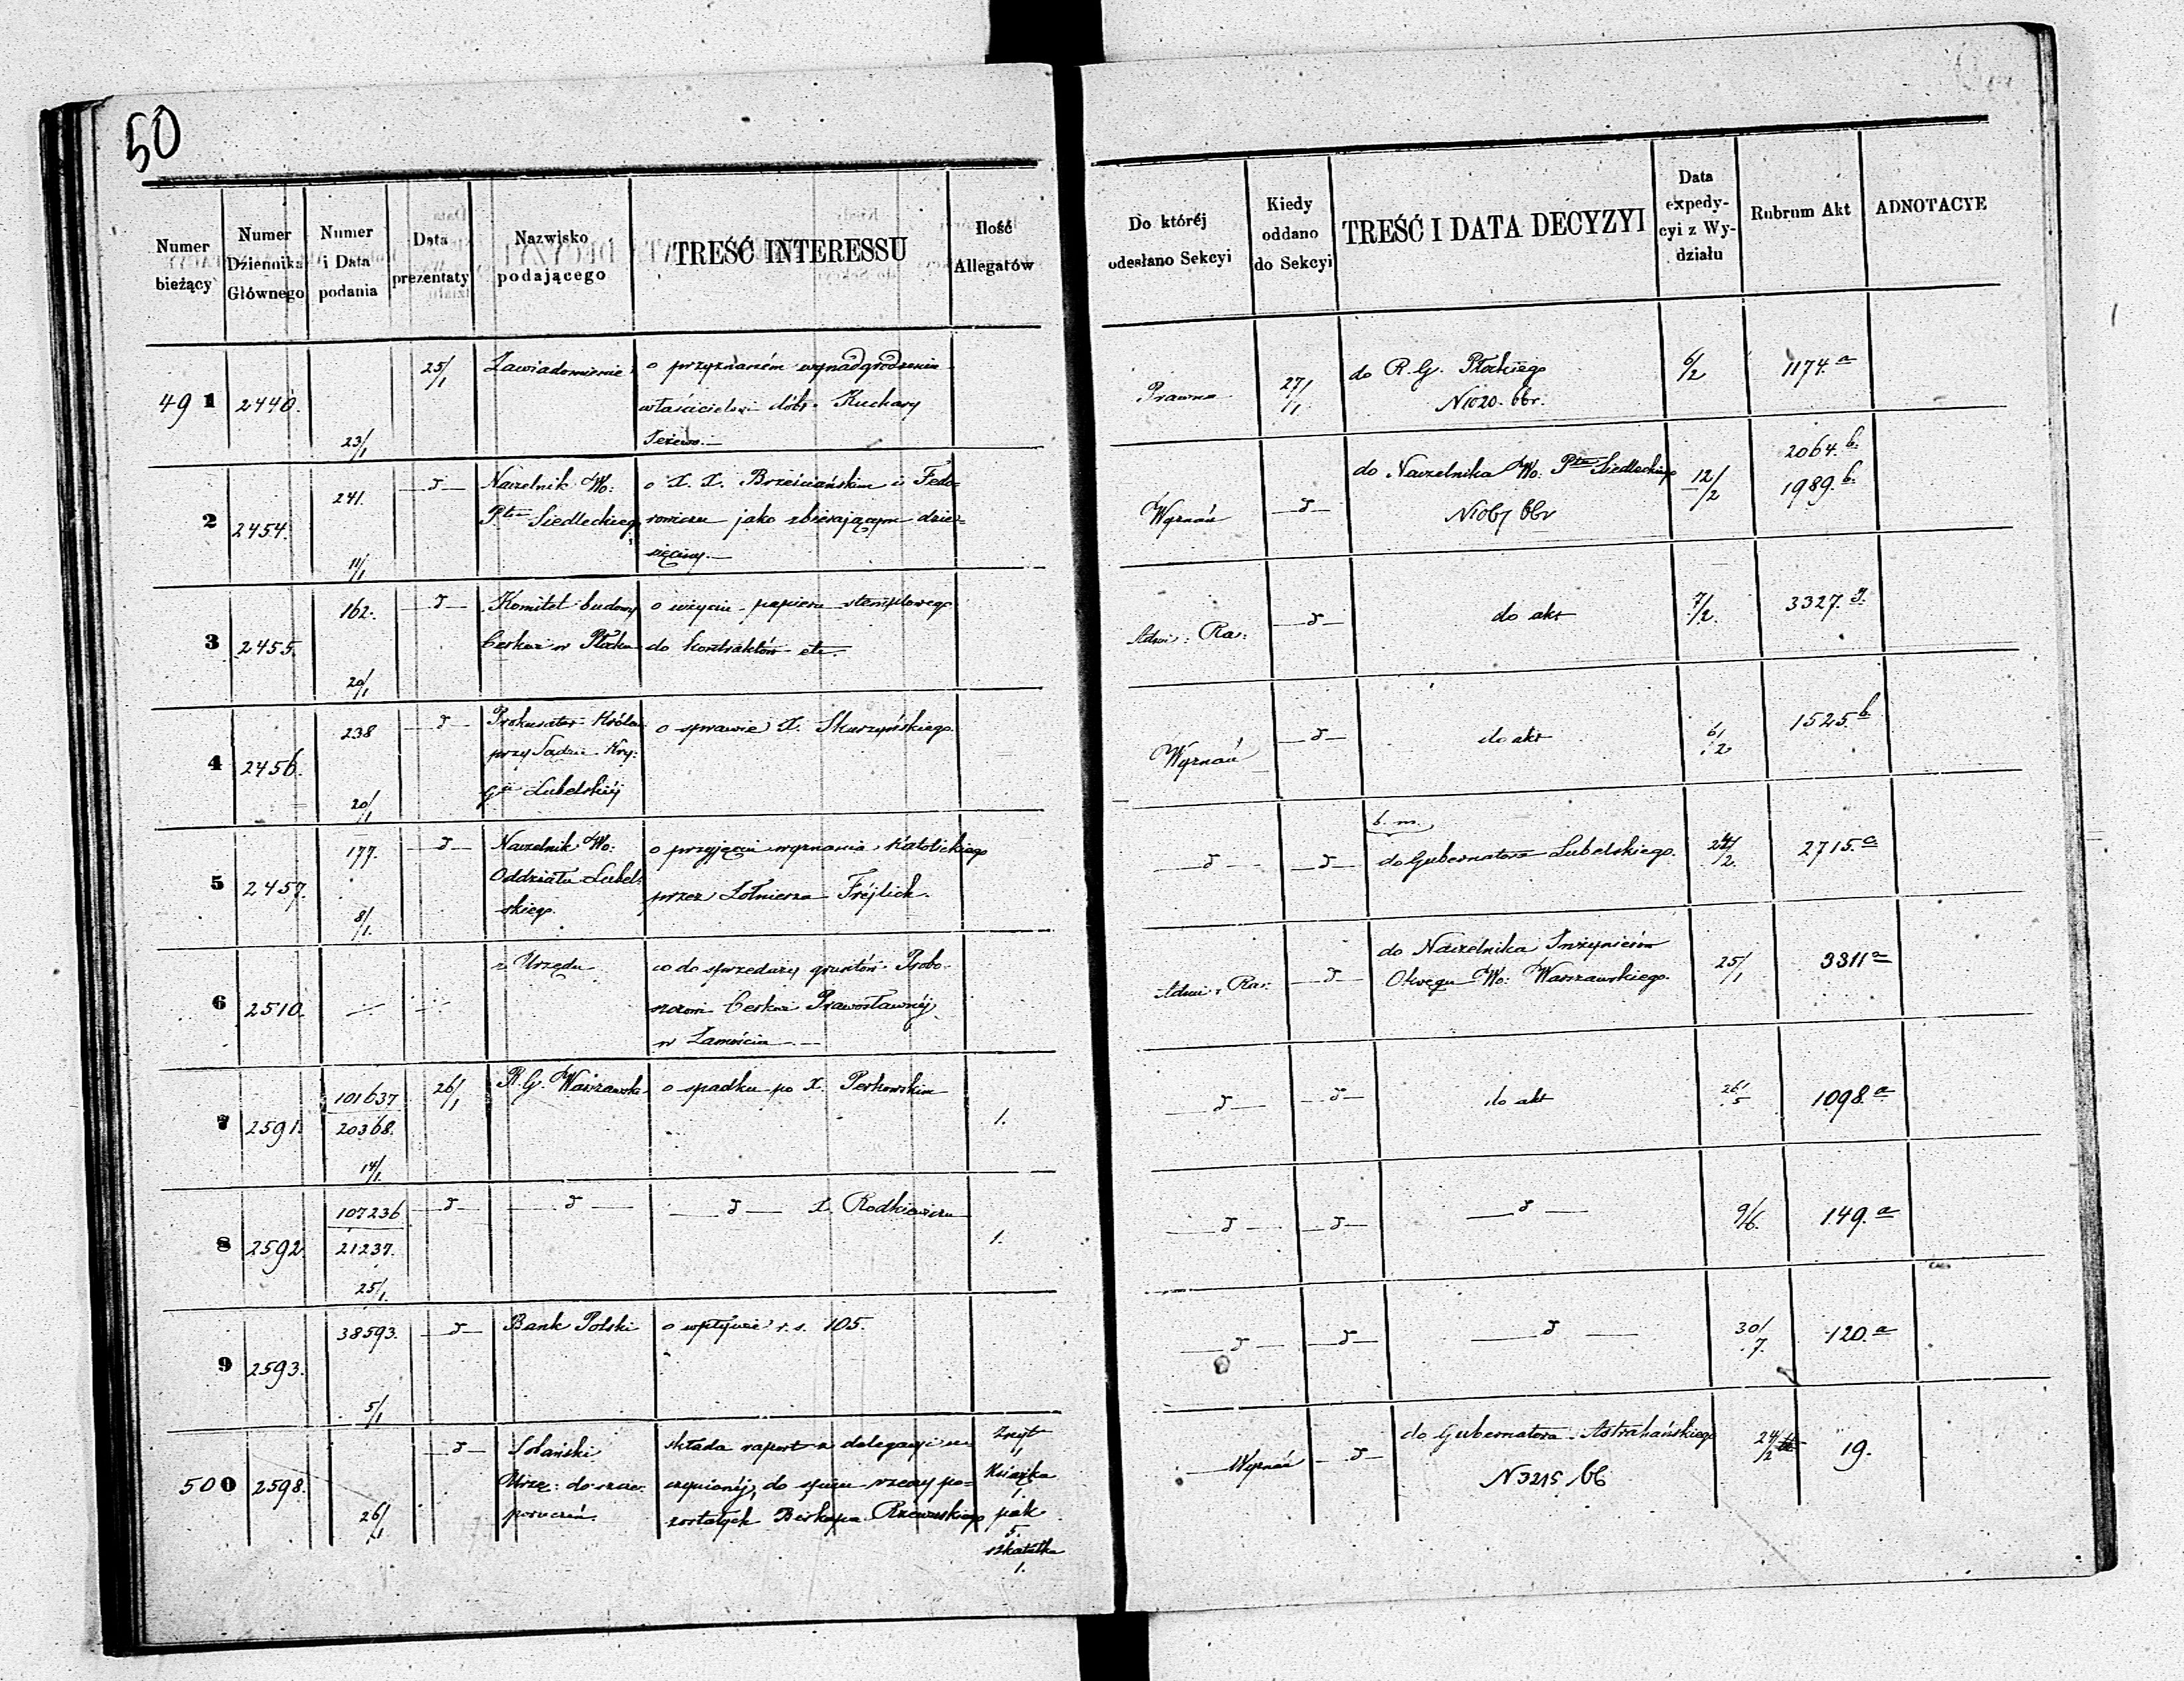 50
Numer bieżący | Numer Dziennika Głównego | Numer i Data podania | Data prezentaty | Nazwisko podającego | TREŚĆ INTERESSU | Ilość Allegatów | Do któréj odesłano Sekcyi | Kiedy oddano do Sekcyi | TREŚĆ I DATA DECYZYI | Data expedycyi z Wydziału | Rubrum Akt | ADNOTACYE
49 1 | 2440. | 23/1 | 25/1 | Zawiadomienie | o przyznaniém wynadgrodzeniu
właścicielowi dóbr Kuchary
Jeżewo.— | Prawna | 27/1 | do R. G. Płockiego
N1020. bbr. | 6/2 | 1174. a
2 | 2454. | 241. 11/1 | —d— | Naczelnik Wo:
P.tu Siedleckiego | o X. X. Brześciańskim i Fedo-
rowiczu jako zbierającym dzie-
sięciny.— | Wyznań | —d— | do Naczelnika Wo. Ptu Siedleckiego
N1067 bbr | 12/2 | 2064. b.
1989. b.
3 | 2455. | 162. 20/1 | —d— | Komitet budowy
Cerkwi w Płocku | o użyciu papieru stemplowego
do kontraktów etc. | Adm: Ra: | —d— | do akt | 7/2. | 3327. g.
4 | 2456. | 238 20/1 | —d— | Prokurator Króle.
przy Sądzie Kry:
Gii Lubelskiéj | o sprawie X. Skarzyńskiego. | Wyznań | —d— | do akt | 6/2 | 1525. b
5 | 2457. | 177. 8/1. | —d— | Naczelnik Wo:
Oddziału Lubel-
skiego. | o przyjęciu wyznania katolickiego
przez Żołnierza Fréjlich. | —d— | —d— | b. m.
do Gubernatora Lubelskiego. | 24/2. | 2715. c
6 | 2510. | — | — | z Urzędu | co do sprzedaży gruntów Probo-
szczowi Cerkwi Prawosławnéj
w Zamościu.— | Adm: Ra: | —d— | do Naczelnika Inżynierów
Okręgu Wo: Warszawskiego. | 25/1 | 3311 a
7 | 2591. | 101637
20368. 14/1. | 26/1 | R. G. Warszawski | o spadku po X. Perkowskim | 1. | —d— | —d— | do akt | 26/5 | 1098. a
8 | 2592 | 107236
21237. 25/1. | —d— | —d— | —d— X. Rodkiewiczu | 1. | —d— | —d— | —d— | 9/6. | 149. a
9 | 2593. | 38593. 5/1 | —d— | Bank Polski | o wpływie r. s. 105. | —d— | —d— | —d— | 30/7. | 120. a
500 | 2598. | 26/1 | —d— | Urzę: do szcze.
poruczeń. | składa raport z delegacyi u-
czynionéj, do spisu rzeczy po-
zostałych Biskupa Rzewuskiego | Zszyt
1
Książka
1.
pak
5.
szkatułka
1. | Wyznań | —d— | do Gubernatora Astrahańskiego
N3215 bb | 24/2 | 19.